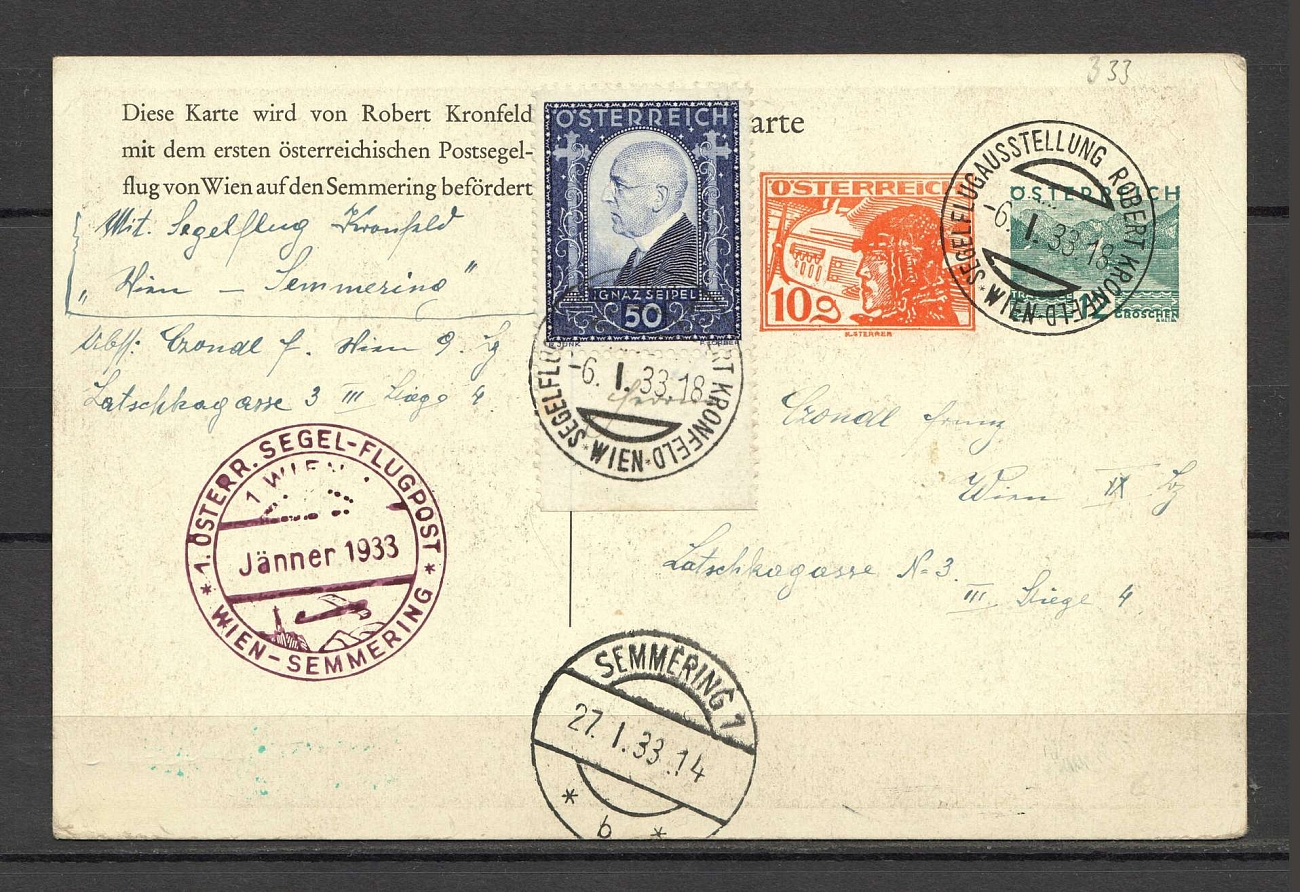 333
Diese Karte wird von Robert Kronfeld
mit dem ersten österreichischen Postsegel-
flug von Wien auf den Semmering befördert
arte
Mit Segelflug Kronfeld
„Wien – Semmering"
Abs: f. Wien 9
Latschkagasse 3 III Stiege 4
ÖSTERREICH
IGNAZ SEIPEL
50
ÖSTERREICH
10g
K. STERRER
ÖSTERREICH
12
GROSCHEN
SEGELFLUGAUSSTELLUNG ROBERT KRONFELD
-6. I. 33.18
* WIEN *
SEGELFLU RT KRONFELD
-6. I. 33.18
* WIEN *
1. ÖSTERR. SEGEL-FLUGPOST
1 WIEN
Jänner 1933
* WIEN-SEMMERING *
Franz
Wien IX
Latschkagasse N. 3.
III. Stiege 4
SEMMERING 1
27. I. 33. 14
* b *